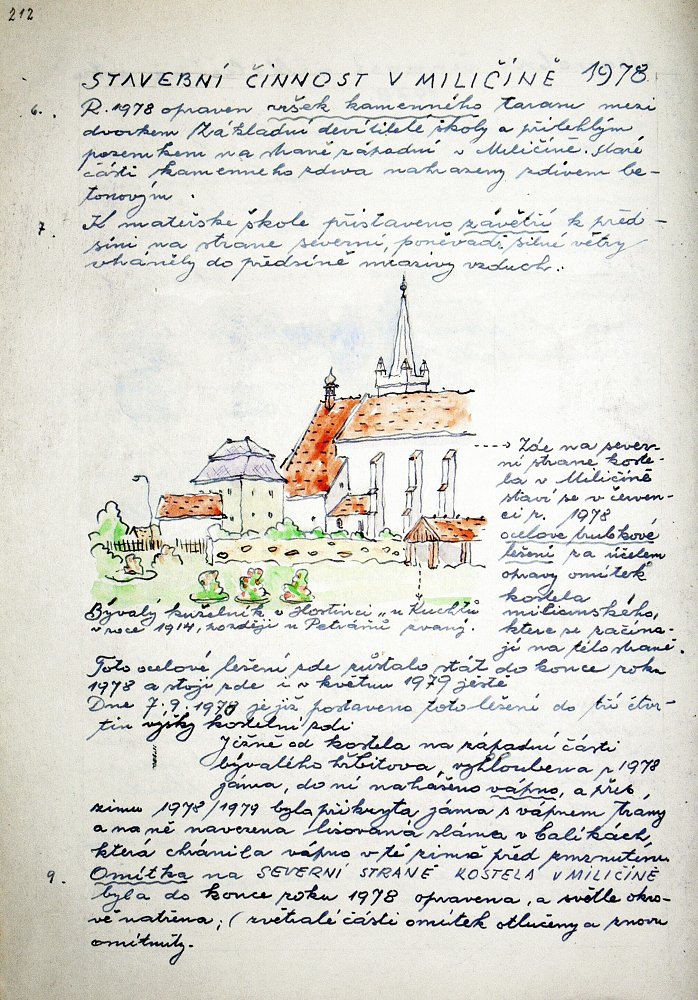 212
STAVEBNÍ ČINNOST V MILIČÍNĚ 1978.
6. R. 1978 opraven vršek kamenného tarasu mezi
dvorkem Základní devítileté školy a přilehlým
pozemkem na straně západní v Miličíně. Staré
části kamenného zdiva nahrazeny zdivem be-
tonovým.
7. K mateřské škole přistaveno závětří k před-
síni na straně severní, poněvadž silné větry
vháněly do předsíně mrazivý vzduch.
Zde na sever-
ní straně koste-
la v Miličíně
staví se v červen-
ci r. 1978
ocelové trubkové
lešení za účelem
opravy omítek
kostela
miličínského,
které se začína-
jí na této straně.
Bývalý kuželník v Hostinci „u Kuchtů
v roce 1914, později u Petráňů zvaný.
Toto ocelové lešení zde zůstalo stát do konce roku
1978 a stojí zde i v květnu 1979 ještě
Dne 7. 9. 1978 je již postaveno toto lešení do tří čtvr-
tin výšky kostelní zdi
Jižně od kostela na západní části
bývalého hřbitova, vyhloubena r 1978
jáma, do ní nahášeno vápno, a přes
zimu 1978/1979 byla přikryta jáma s vápnem trámy
a na ně navezena lisovaná sláma v balíkách,
která chránila vápno v té zimě před zmrznutím.
9. Omítka na SEVERNÍ STRANĚ KOSTELA V MILIČÍNĚ
byla do konce roku 1978 opravena, a světle okro-
vě natřena; (zvětralé části omítek otlučeny a znovu
omítnuty.